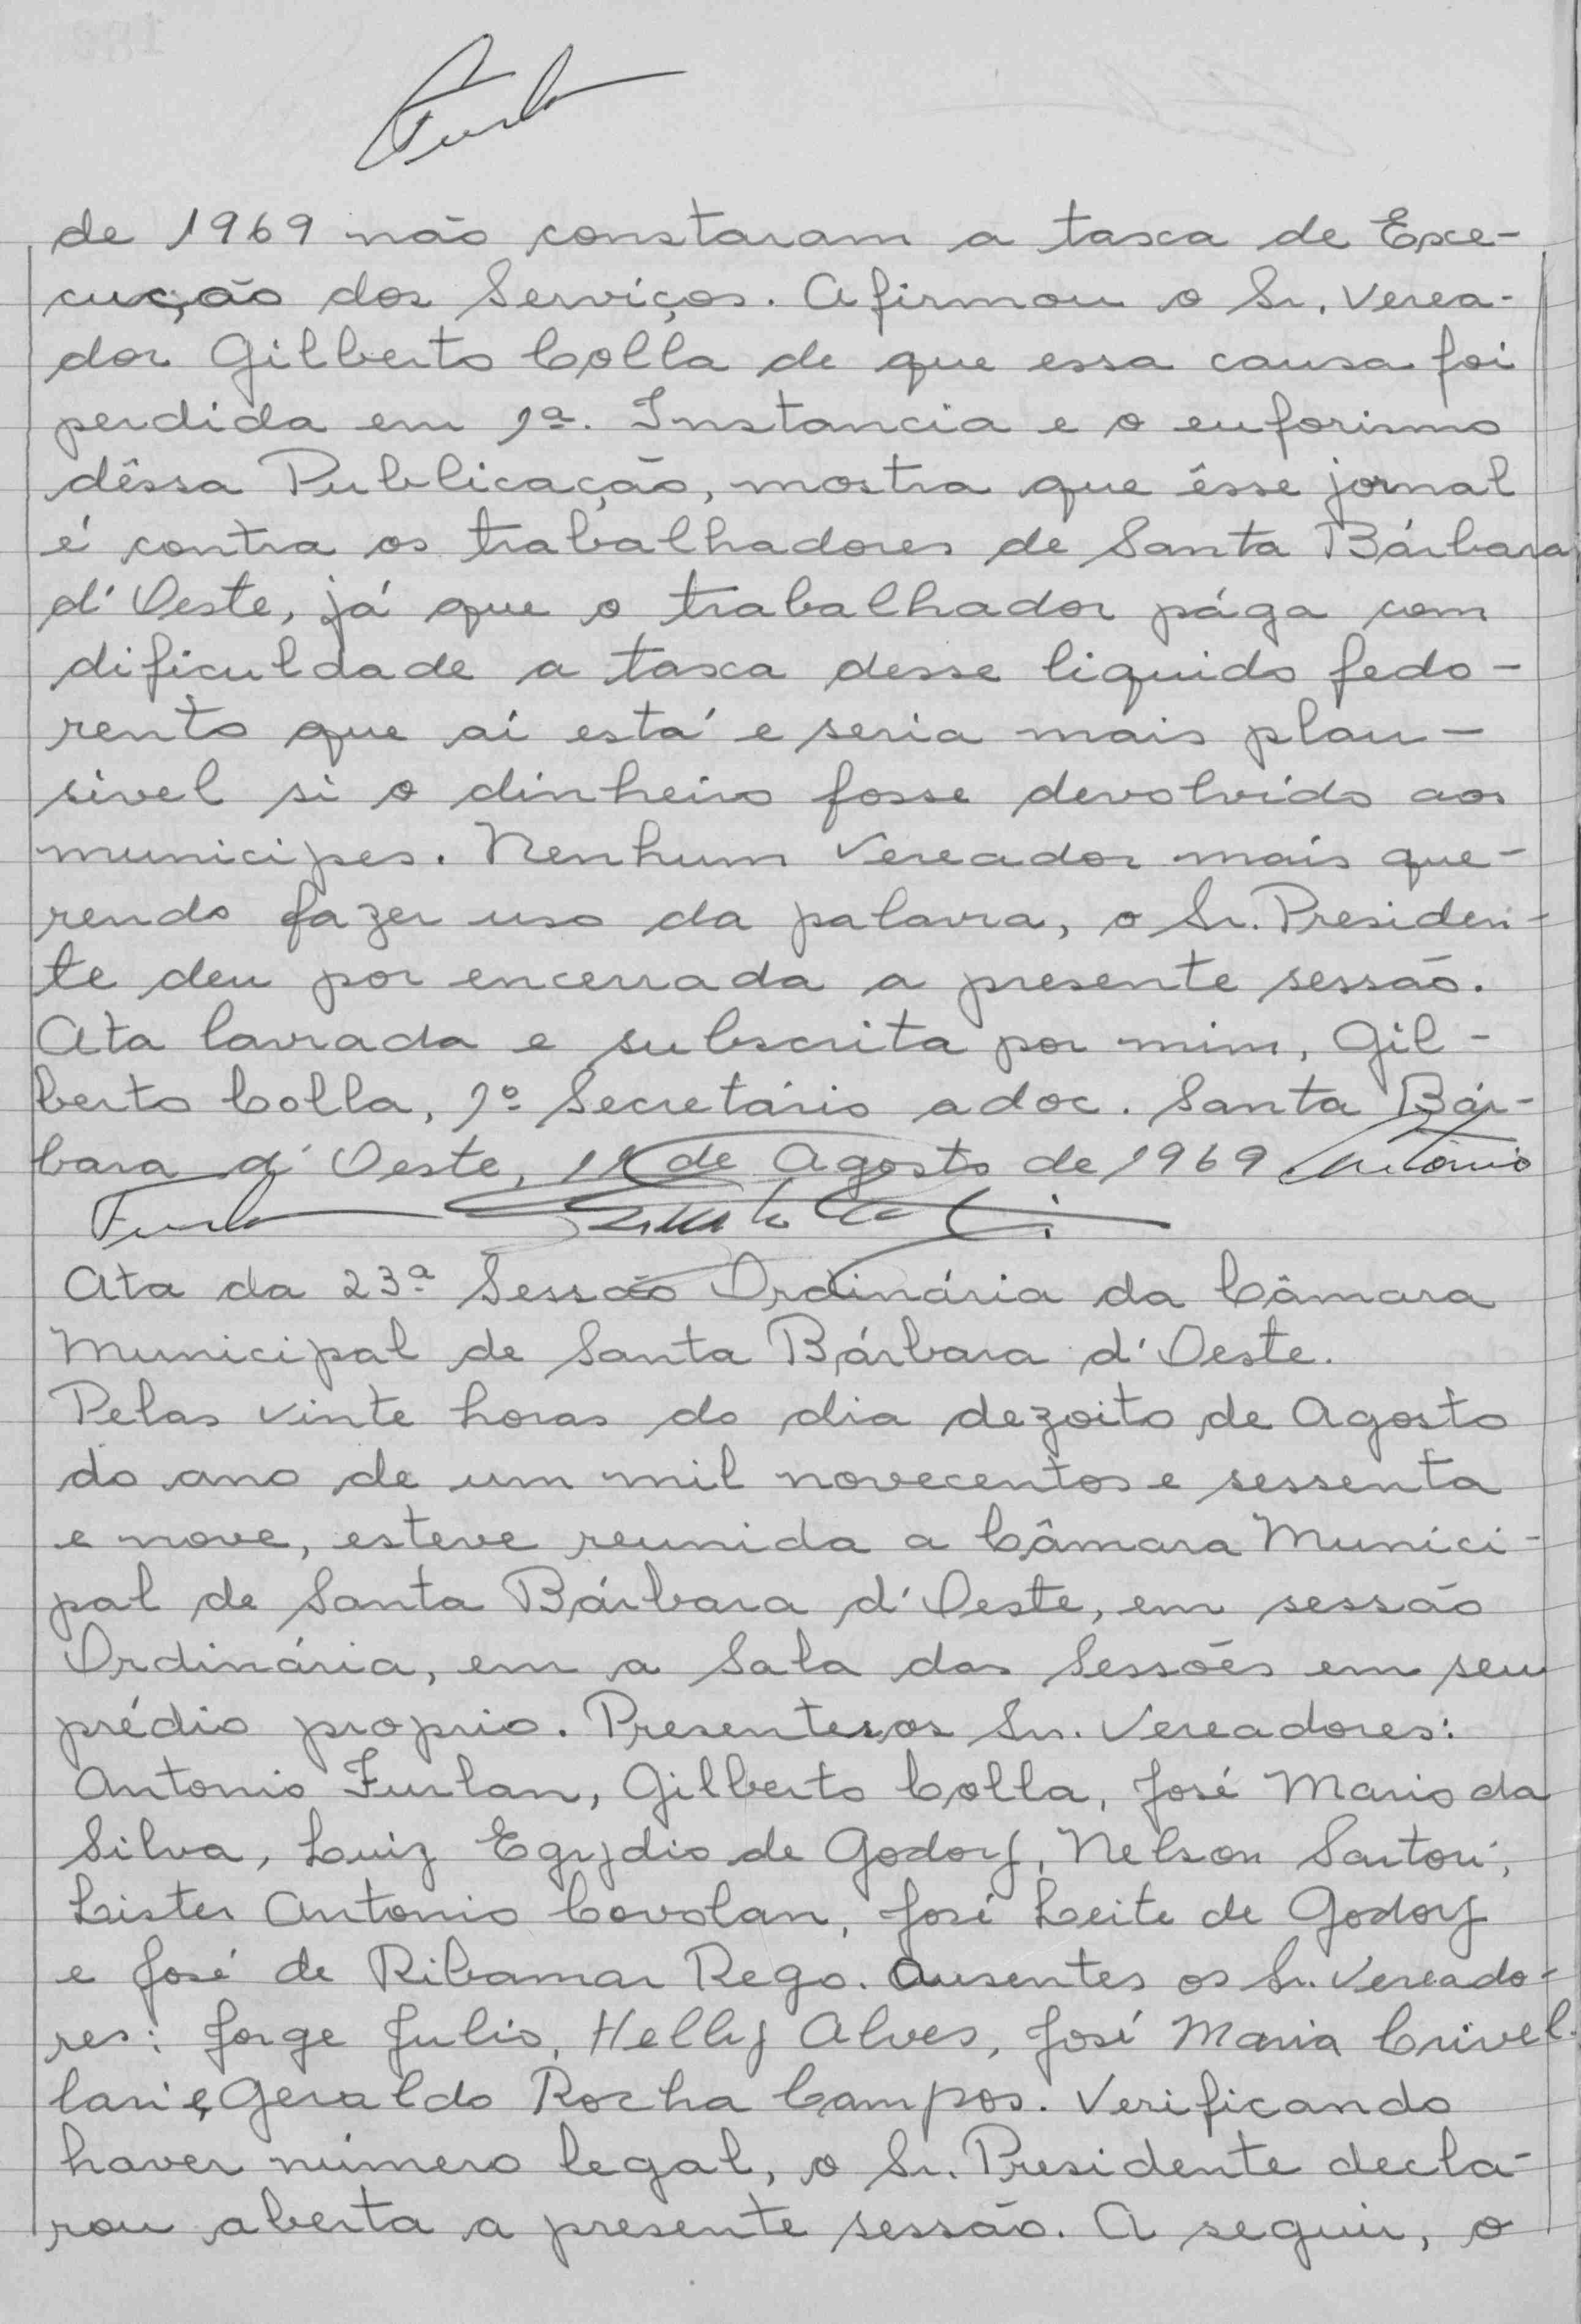 de 1969 não constaram a taxa de Exe-
cução dos Serviços. Afirmou o Sr. Verea-
dor Gilberto Colla de que essa causa foi
perdida em 1ª. Instancia e o euforismo
dêssa Publicação, mostra que êsse jornal
é contra os trabalhadores de Santa Bárbara
d'Oeste, já que o trabalhador pága com
dificuldade a taxa desse liquido fedo-
rento que aí está e seria mais plau-
sivel si o dinheiro fosse devolvido aos
municipes. Nenhum Vereador mais que-
rendo fazer uso da palavra, o Sr. Presiden-
te deu por encerrada a presente sessão.
Ata lavrada e subscrita por mim, Gil-
berto Colla, 1º Secretário adoc. Santa Bár-
bara d'Oeste, de Agosto de 1969 Antonio
Ata da 23ª Sessão Ordinária da Câmara
Municipal de Santa Bárbara d'Oeste.
Pelas vinte horas do dia dezoito de Agosto
do ano de um mil novecentos e sessenta
e nove, esteve reunida a Câmara Munici-
pal de Santa Bárbara d'Oeste, em sessão
Ordinária, em a Sala das Sessões em seu
prédio proprio. Presentes,os Srs. Vereadores:
Antonio Furlan, Gilberto Colla, José Mario da
Silva, Luiz Egydio de Godoy, Nelson Sartori,
Lister Antonio Covolan, José Leite de Godoy
e José de Ribamar Rego. Ausentes os Sr. Vereado-
res: Jorge Julio, Helly Alves, José Maria Crivel-
lari e Geraldo Rocha Campos. Verificando
haver número legal, o Sr. Presidente decla-
rou aberta a presente sessão. A seguir, o